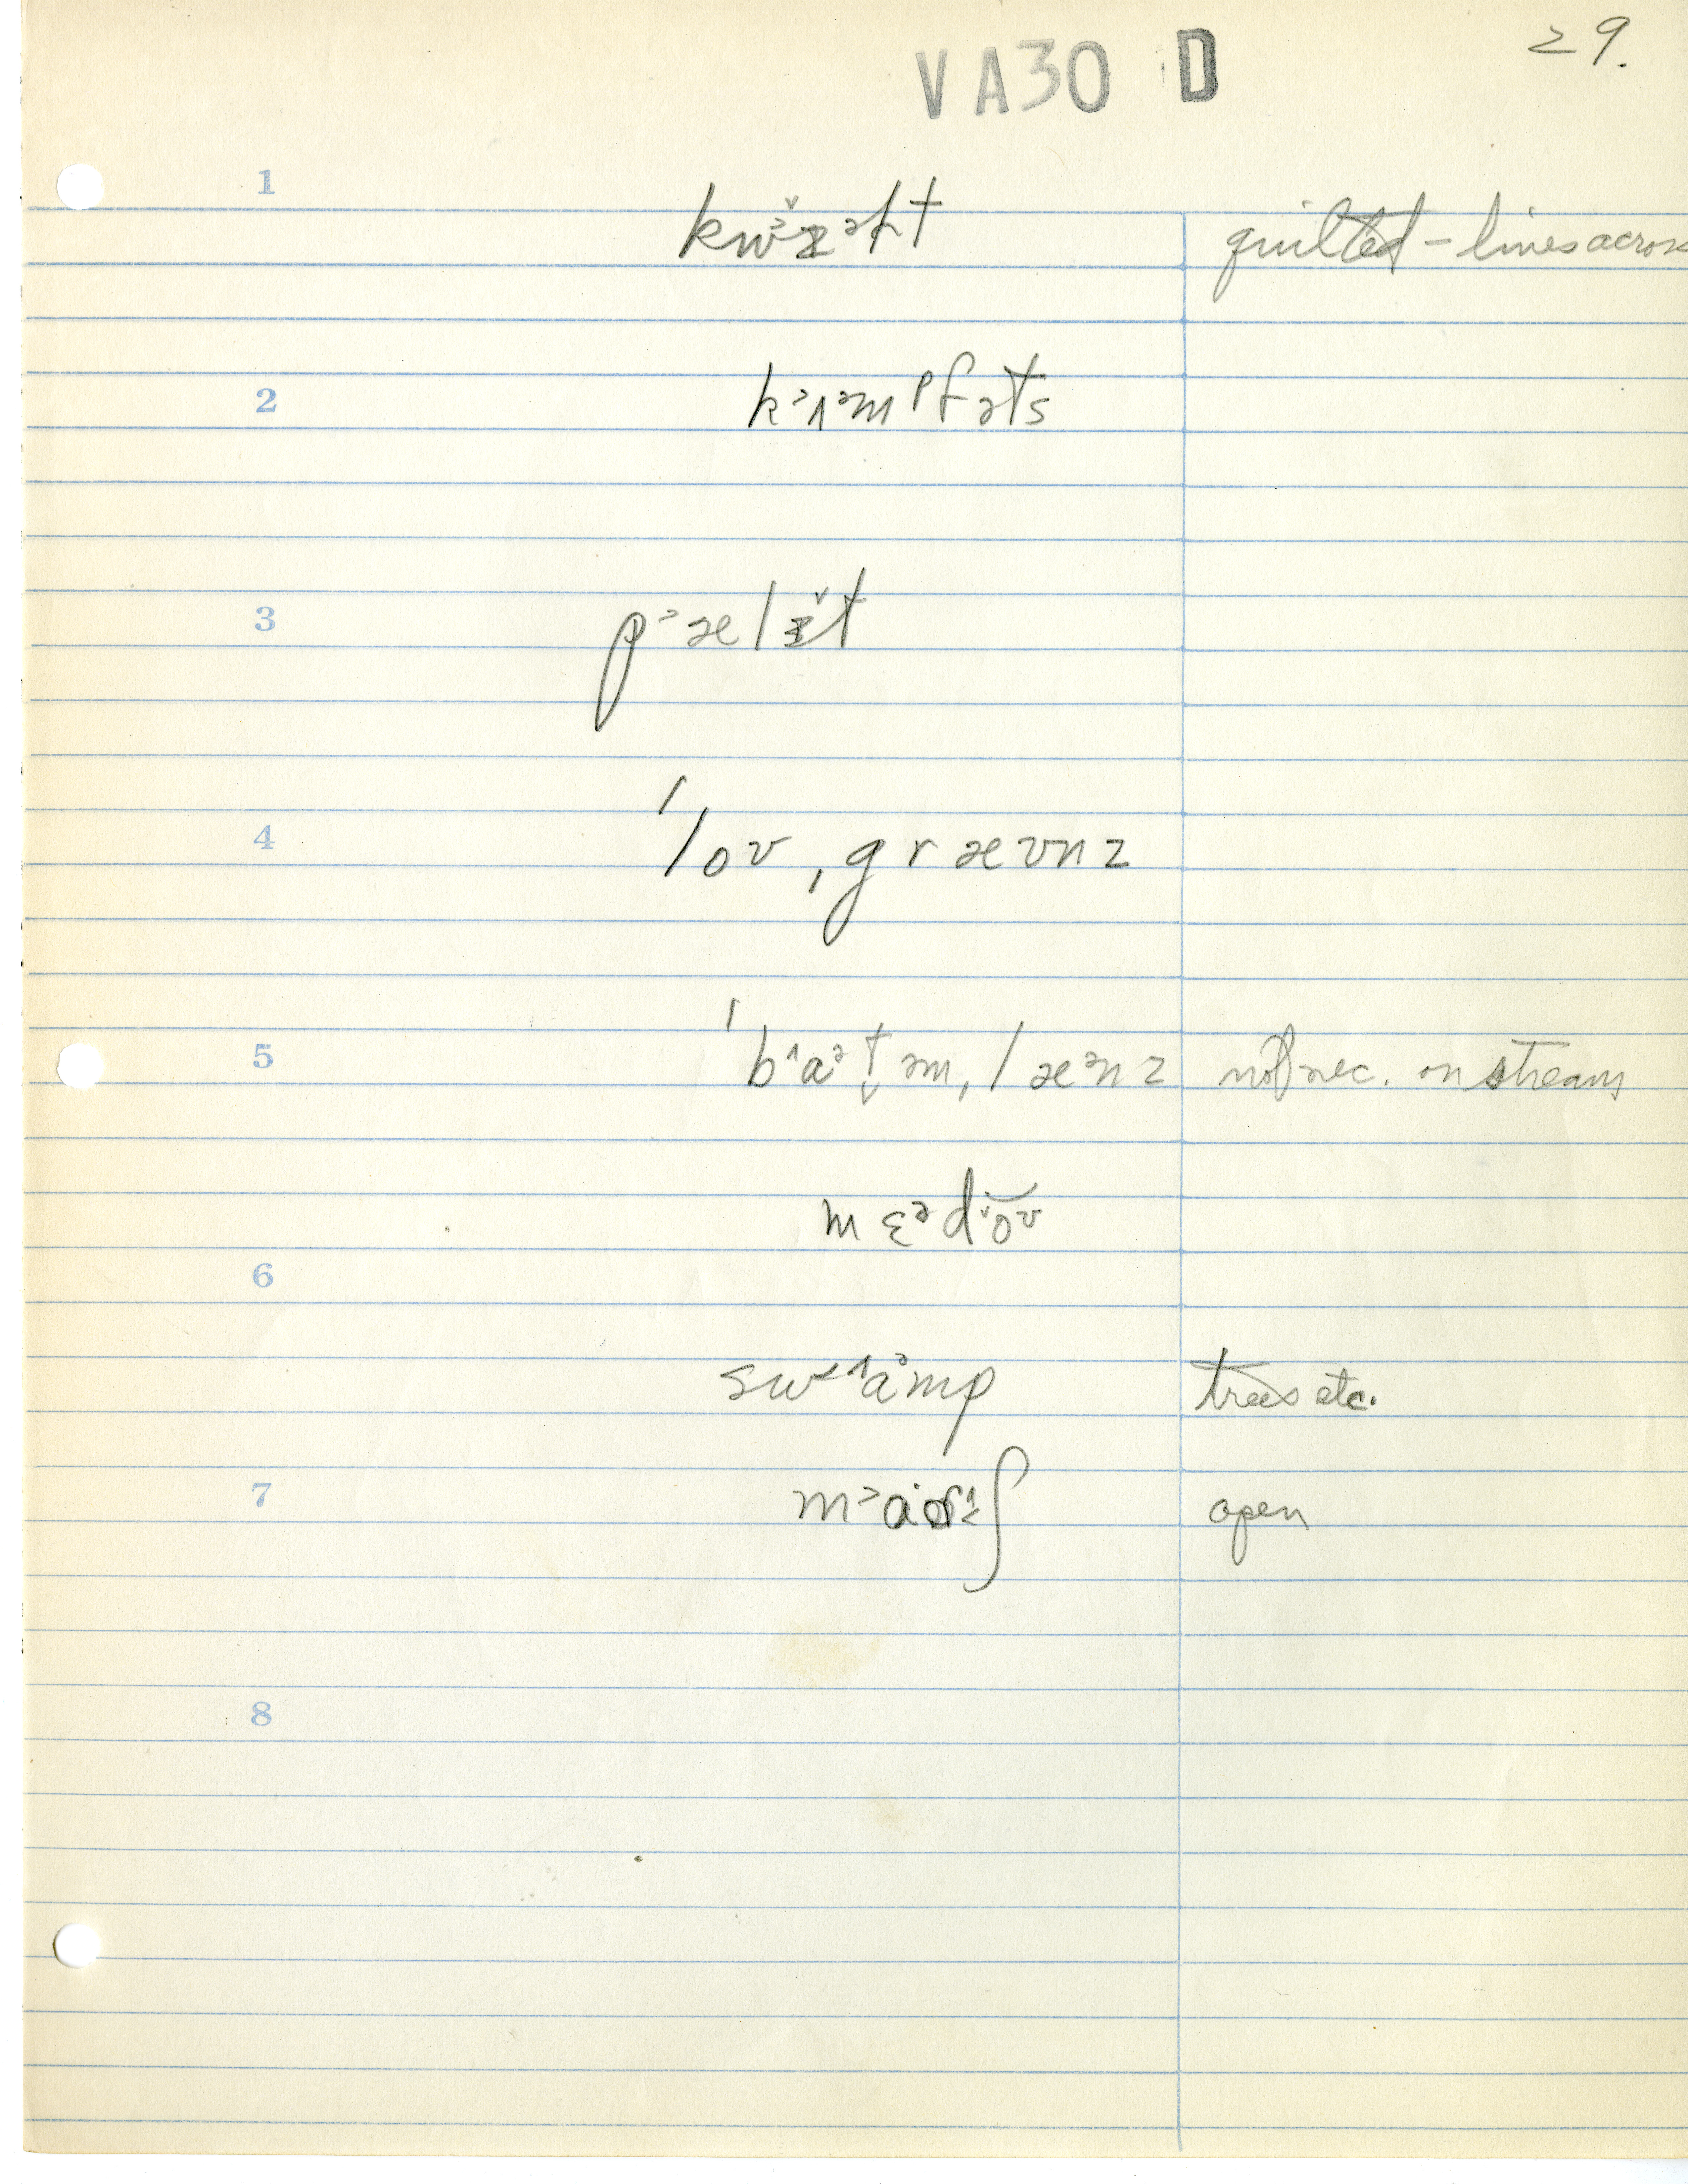 29.
VA30 D
1
kwɪ̆ᵊɫt quilted - lines across
2
k˃ʌᵊmᵖfəts
3
p˃ælɪ̆t
4
ˈloʊˌgræʊnz
5
ˈb˄aᵊt̬əmˌlæᵊnz not nec. on stream
mɛᵊdŏʊ
6
sw˂˄aᵊmp trees etc.
7
open
8